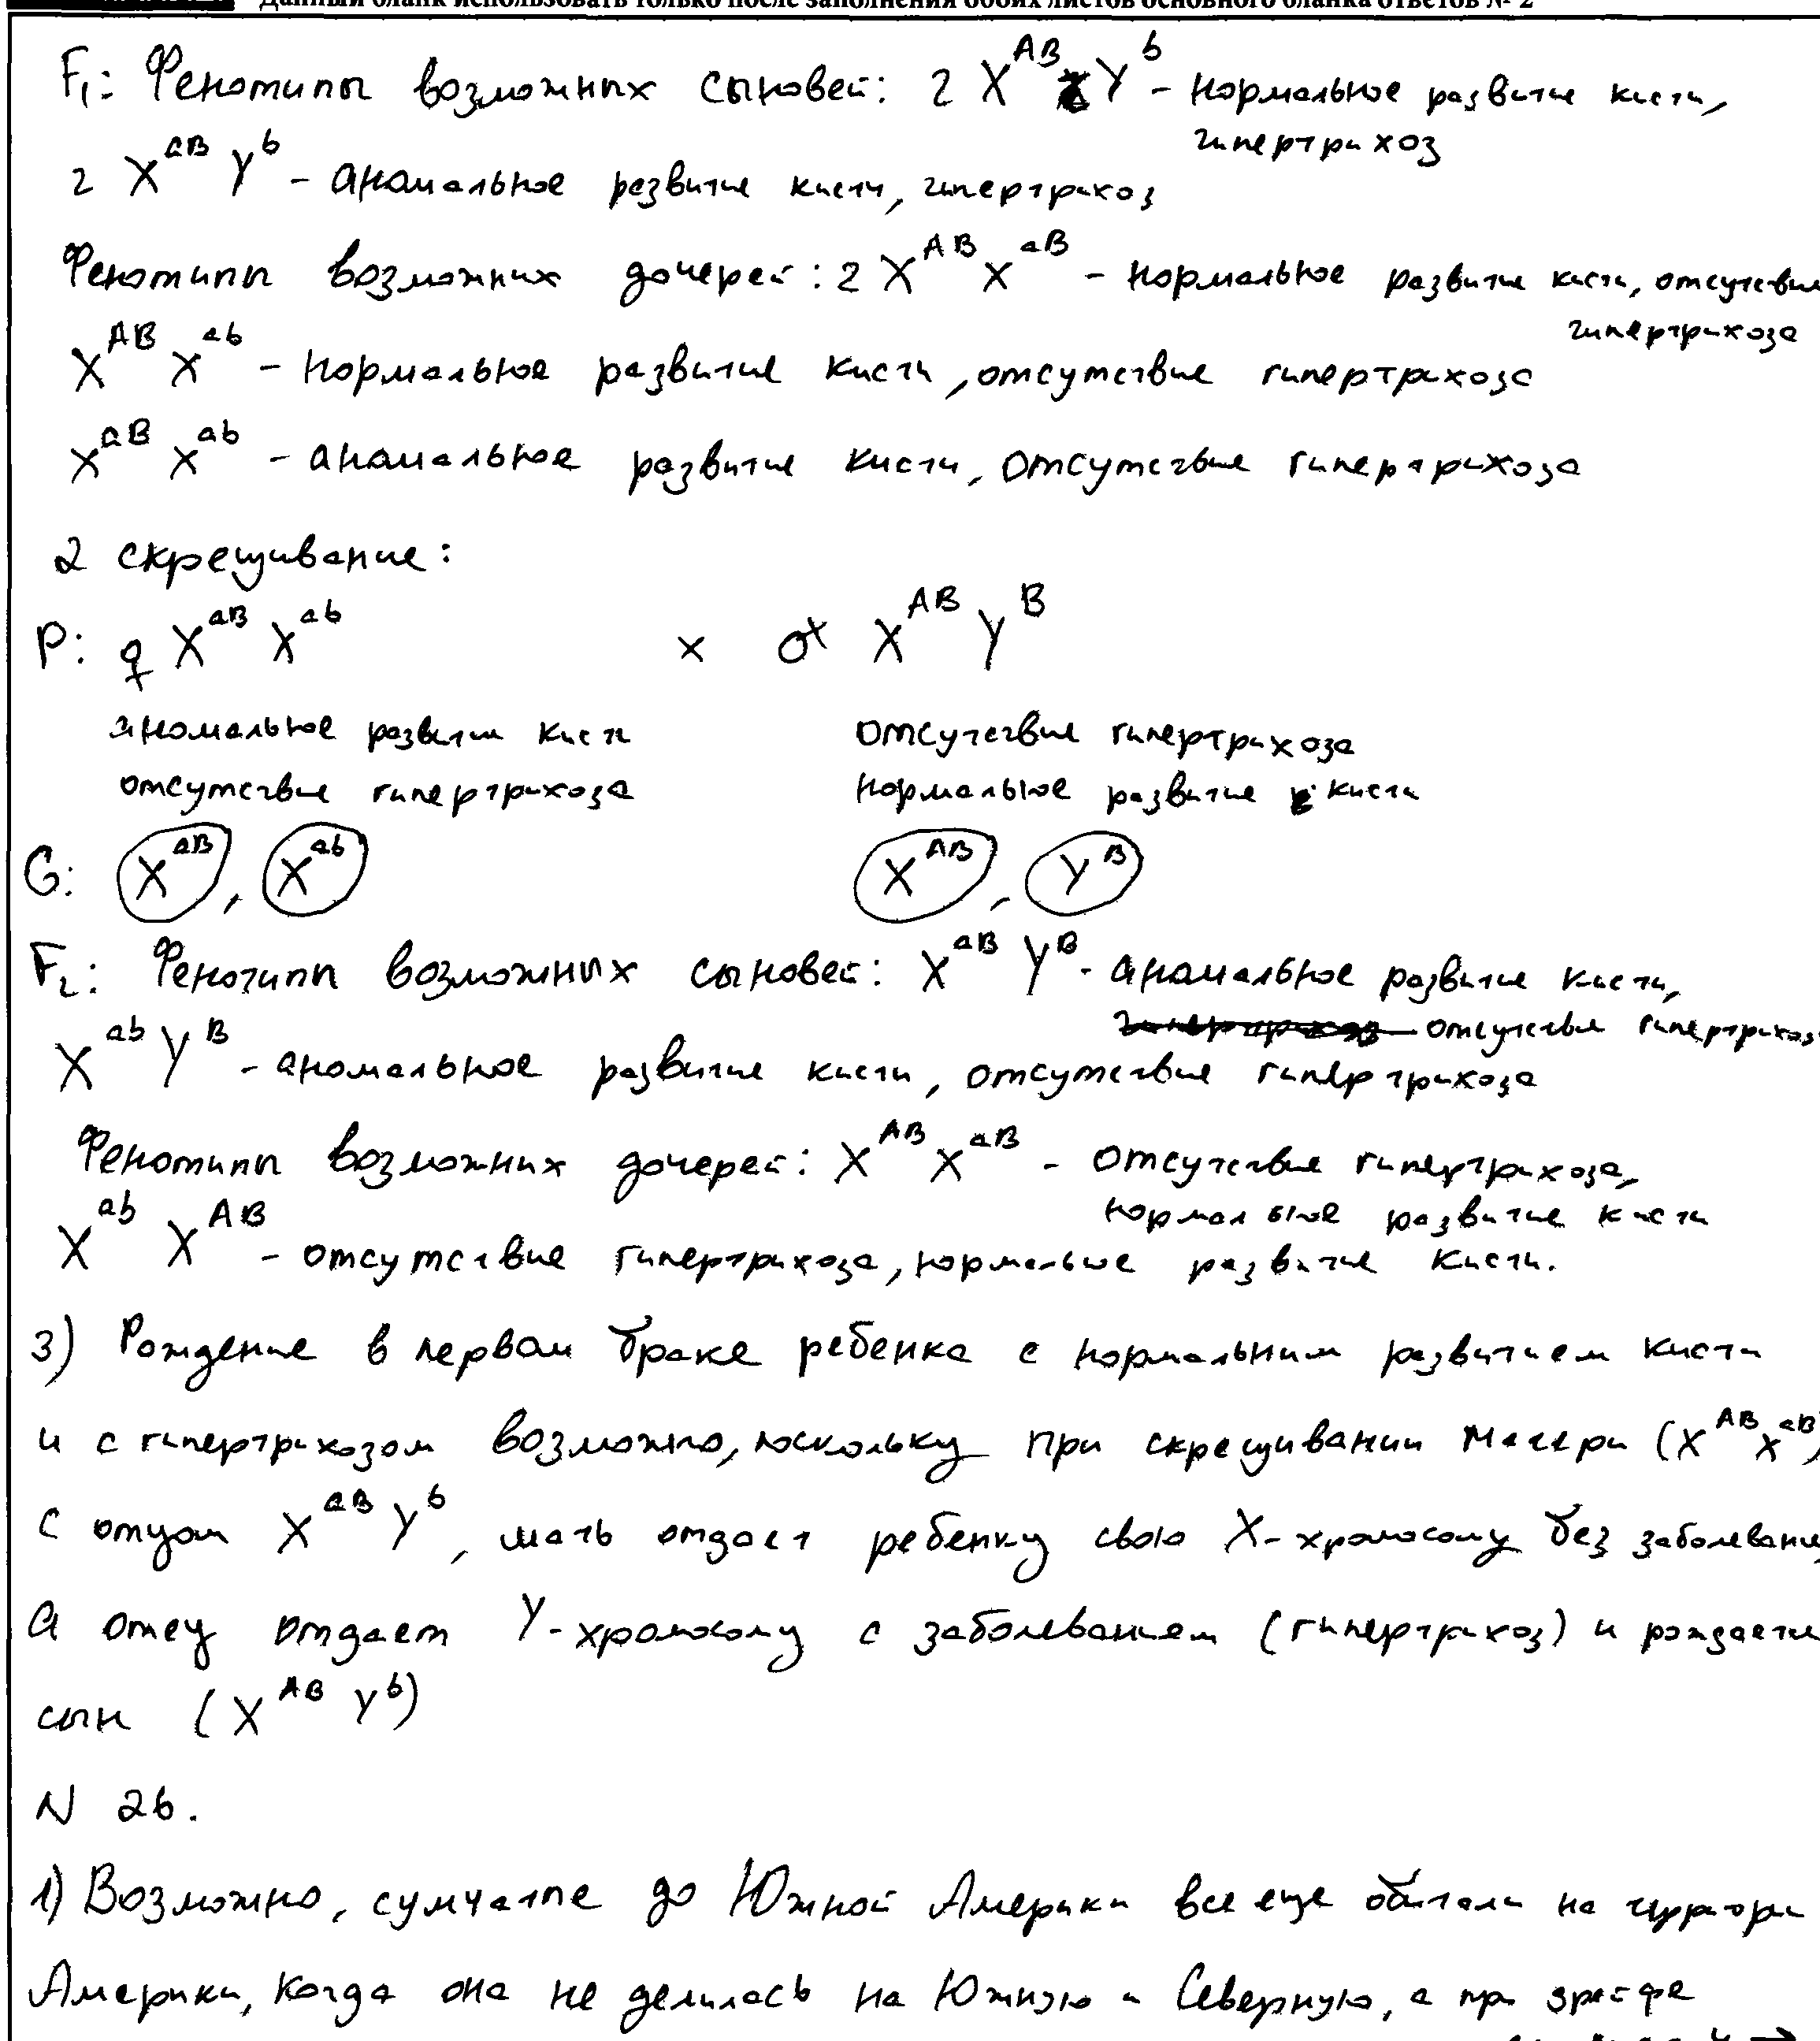 Данный бланк использовать только после заполнения обоих листов основного бланка ответов № 2
F₁: Фенотипы возможных сыновей: 2 X^AB Y^b - нормальное развитие кисти,
гипертрихоз
2 X^aB Y^b - аномальное развитие кисти, гипертрихоз
Фенотипы возможных дочерей: 2 X^AB X^aB - нормальное развитие кисти, отсутствие
гипертрихоза
X^AB X^ab - нормальное развитие кисти, отсутствие гипертрихоза
X^aB X^ab - аномальное развитие кисти, отсутствие гипертрихоза
2 скрещивание:
P: ♀ X^aB X^ab x ♂ X^AB Y^B
аномальное развитие кисти отсутствие гипертрихоза
отсутствие гипертрихоза нормальное развитие кисти
G: X^aB, X^ab X^AB, Y^B
F₂: Фенотипы возможных сыновей: X^aB Y^B - аномальное развитие кисти,
отсутствие гипертрихоз
X^ab Y^B - аномальное развитие кисти, отсутствие гипертрихоза
Фенотипы возможных дочерей: X^AB X^aB - отсутствие гипертрихоза,
нормальное развитие кисти
X^ab X^AB - отсутствие гипертрихоза, нормальное развитие кисти.
3) Рождение в первом браке ребенка с нормальным развитием кисти
и с гипертрихозом возможно, поскольку при скрещивании матери (X^AB X^aB)
с отцом X^aB Y^b, мать отдает ребенку свою X-хромосому без заболевания,
а отец отдает Y-хромосому с заболеванием (гипертрихоз) и рождается
сын (X^AB Y^b)
N 26.
1) Возможно, сумчатые до Южной Америки все еще обитали на территори
Америки, когда она не делилась на Южную и Северную, а при дрейфе